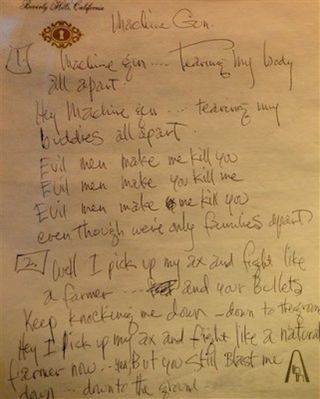 Beverly Hills, California
1
Machine Gun.
1. Machine gun.... Tearing My body
all apart
Hey Machine gun .... tearing my
buddies all apart.
Evil men make me kill you
Evil men make you kill me
Evil men make me kill you
even though we're only families apart
2. Well I pick up my ax and fight like
a farmer .... and your Bullets
Keep knocking me down - down to the ground
Hey I pick up my ax and fight like a natural
farmer now.. yea, But you still Blast me
down .... down to the ground